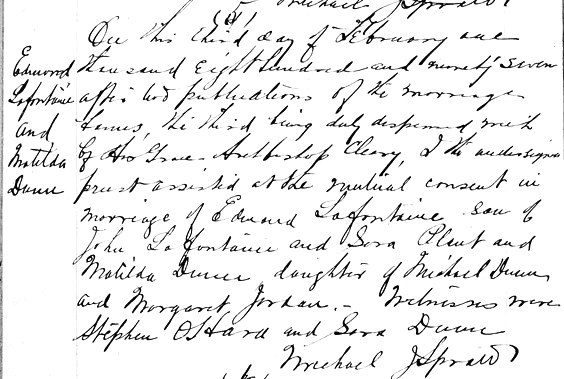 Michael J Spratt
On this third day of February one
thousand eight hundred and ninety seven
after two publications of the marriage
banns, the third being duly dispensed with
by His Grace Archbishop Cleary, I the undersigned
priest assisted at the mutual consent in
marriage of Edward Lafontaine son of
John Lafontaine and Sora Plant and
Matilda Dunn daughter of Michael Dunn
and Margaret Jordan. - Witnesses were
Stephen O'Hara and Sora Dunn
Michael J Spratt
Edmond
Lafontaine
and
Matilda
Dunn